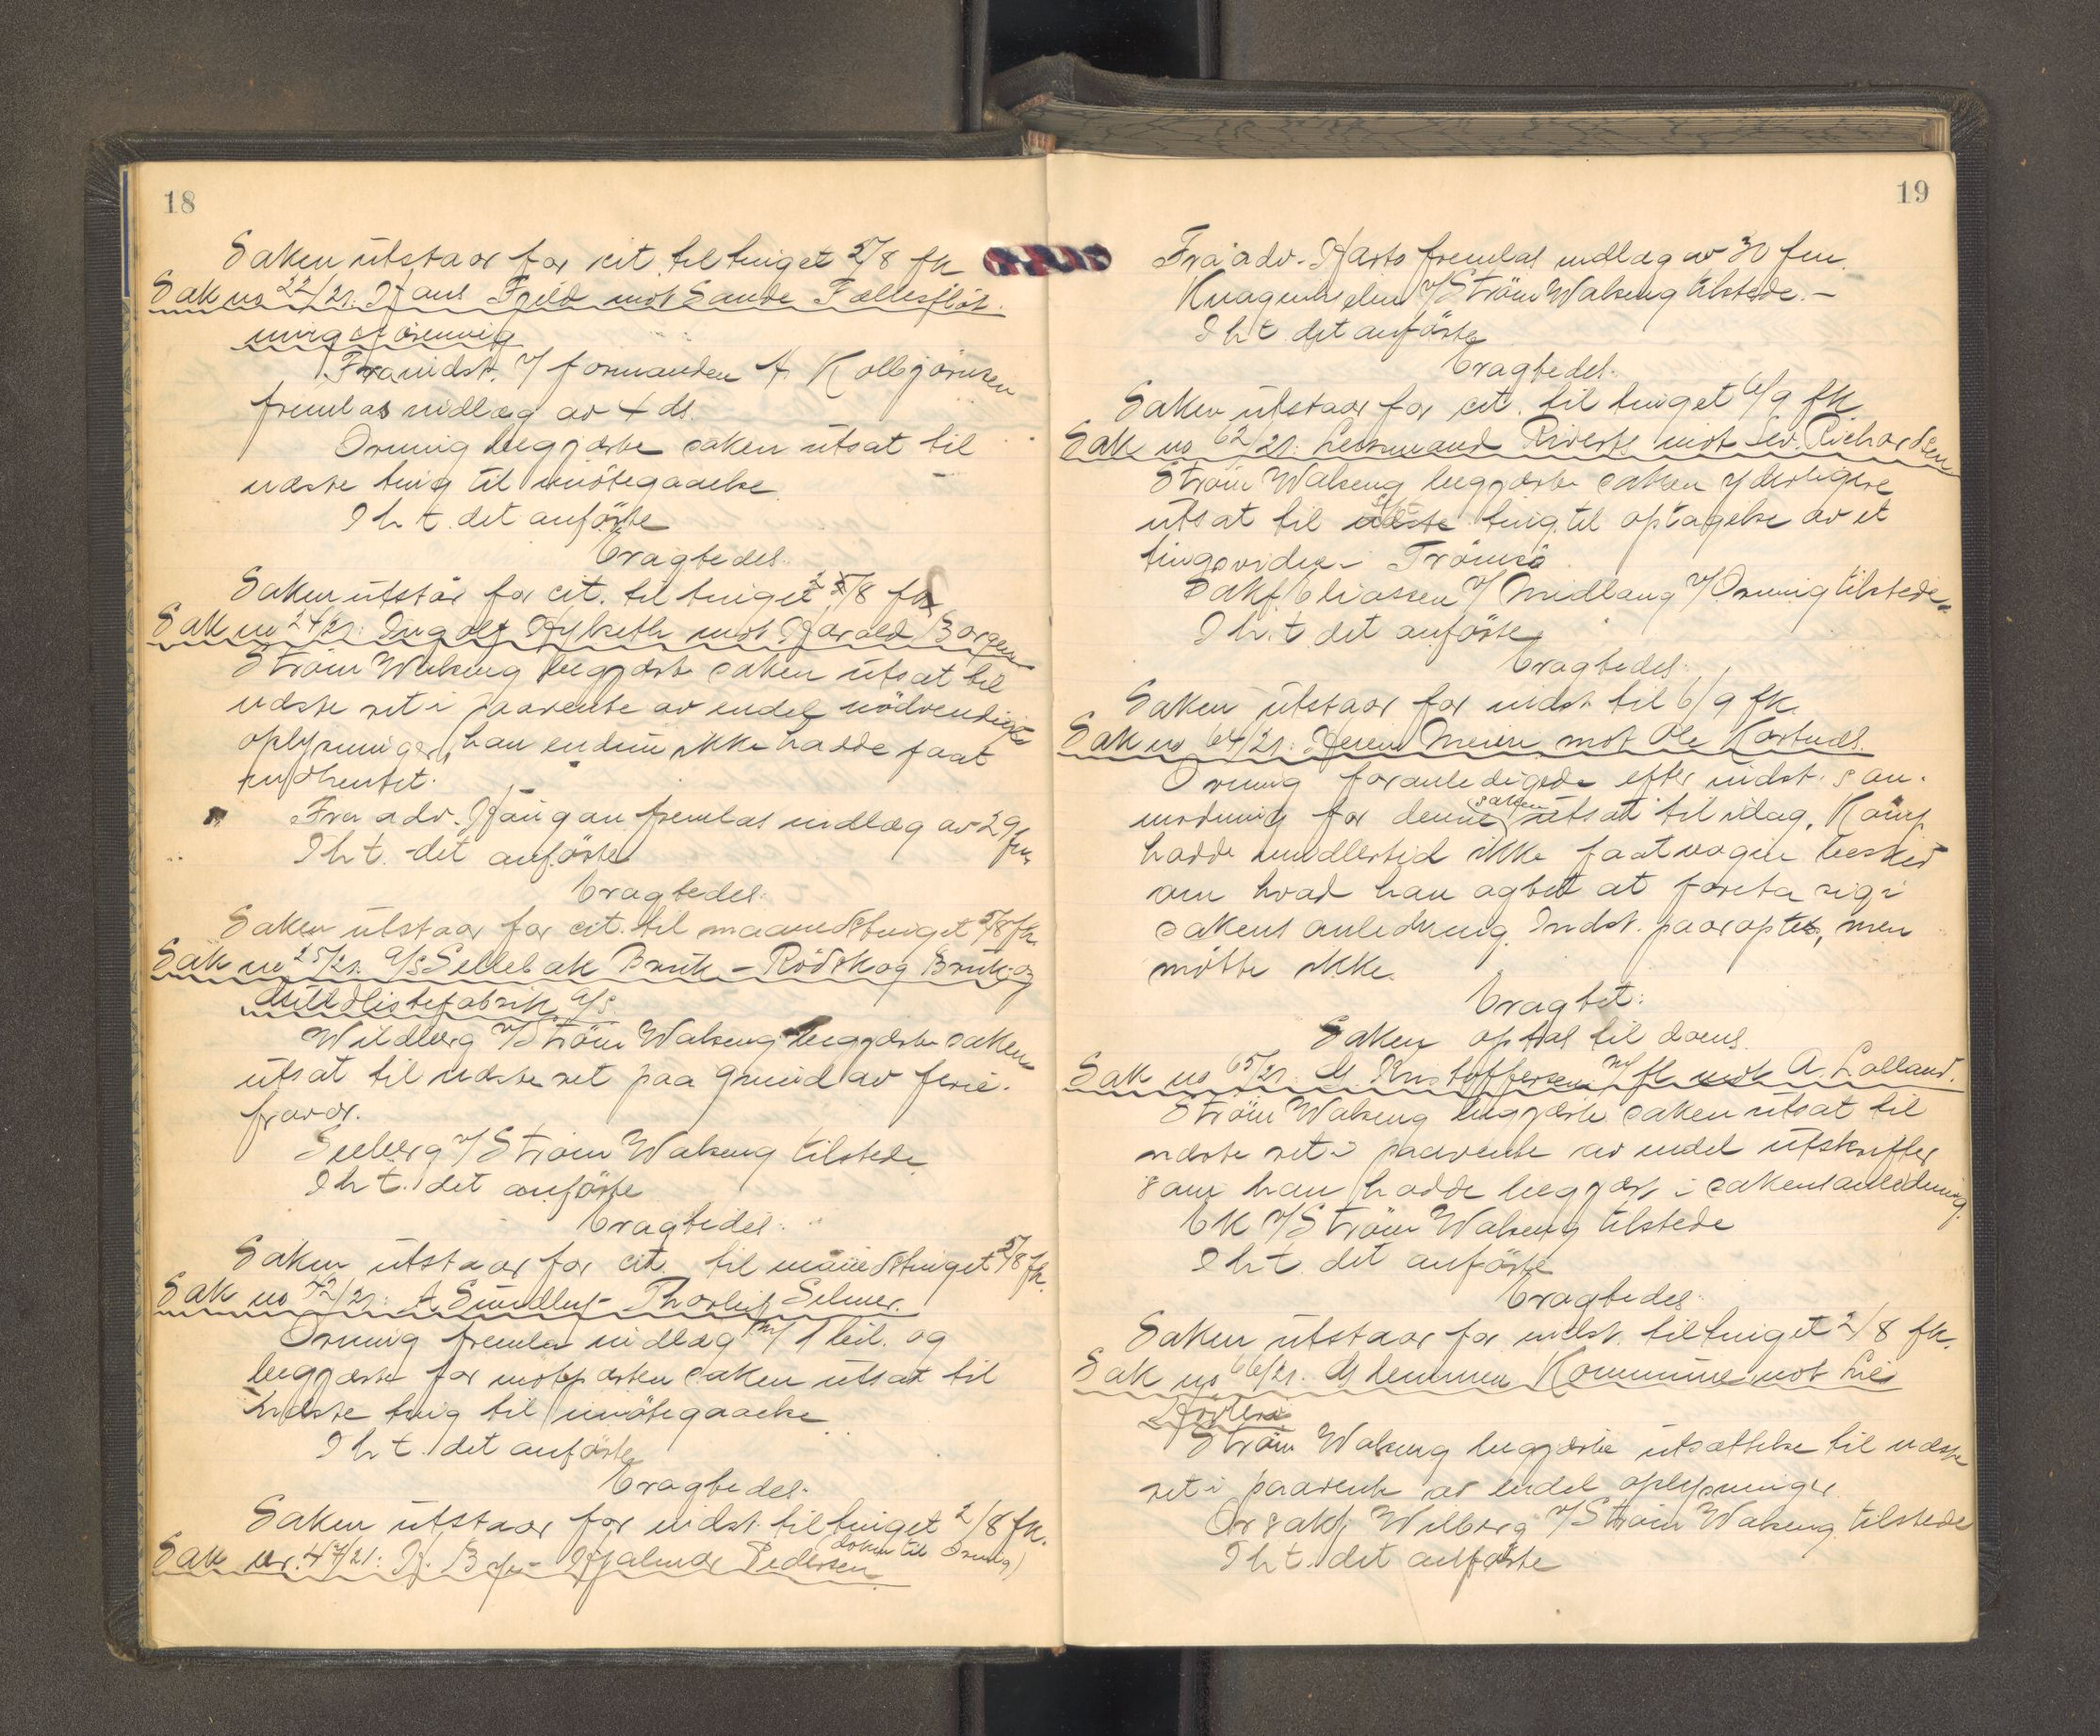 18
Saken utstaar for cit. til tinget 5/8 fk
Sak no 22/21. Hans Fjeld mot Sande Fællesfløt-
ning v/ Ørennig
Fra indst. v/ formanden A. Kolbjörnsen
fremlas indlæg av 4 ds.
Ørennig begjærte saken utsat til
næste ting til imötegaaelse.
I h t. det anförte
Eragtedes:
Saken utstår for cit. til tinget 2/8 fk
Sak no 24/21: Ingolf mot Harald Borgen
Ström Walseng begjærte saken utsat til
næste ret i paavente av endel nödvendige
oplysninger, han endnu ikke hadde faat
indhentet.
Fra adv. Haugan fremlas indlæg av 29 fm.
I h t. det anförte
Eragtedes:
Saken utstaar for cit. til maanedstinget 5/8 fk.
Sak no 25/21. A/S Sellebak Bruk - Rödskog Bruk og
Guldlistefabrik A/S
Wildberg v/ Ström Walseng begjærte saken
utsat til næste ret paa grund av ferie-
fravær.
Seeberg v/ Ström Walseng tilstede
I h t. det anförte
Eragtedes:
Saken utstaar for cit. til månedstinget 5/8 fk.
Sak no 42/21: A. - Thorleif Selmer.
fremla indlæg m/ 1 beil. og
begjærte for motparten saken utsat til
næste ting til imötegaaelse
I h t. det anförte
Eragtedes:
Saken utstaar for indst. til tinget 2/8 fk.
Sak nr. 47/21: H. - Hjalmar Pedersen
19
Fra adv. Hjorts fremlas indlæg av 30 fm.
v/ Ström Walseng tilstede. -
I h t det anförte
Eragtedes:
Saken utstaar for cit. til tinget 6/9 fk.
Sak no 62/21: Lensmand mot Richardsen
Ström Walseng begjærte saken yderligere
utsat til ting til optagelse av et
tingsvidne i Tromsö
Sakf. Eliassen v/ v/ tilstede.
I h. t. det anförte
Eragtedes:
Saken utstaar for indst til 6/9 fk.
Sak no 64/21: mot Ole
foranledigede efter indst.s an-
modning for denne saken utsat til idag.
hadde imidlertid ikke faat nogen besked
om hvad han agtet at foreta sig i
sakens anledning. Indst. paaroptes, men
mötte ikke.
Eragtet:
Saken optas til doms.
Sak no 65/21. Kristoffersen m/ fl. mot A. Lolland.
Ström Walseng begjærte saken utsat til
næste ret i paavente av endel utskrifter
som han hadde begjært i sakens anledning.
EK v/ Ström Walseng tilstede
I h t. det anförte
Eragtedes:
Saken utstaar for indst. til tinget 2/8 fk.
Sak no 66/21. Glemmen Kommune mot
Ström Walseng begjærte utsættelse til næste
ret i paavente av endel oplysninger.
Or sakf. Wilberg v/ Ström Walseng tilstede
I h t. det anförte